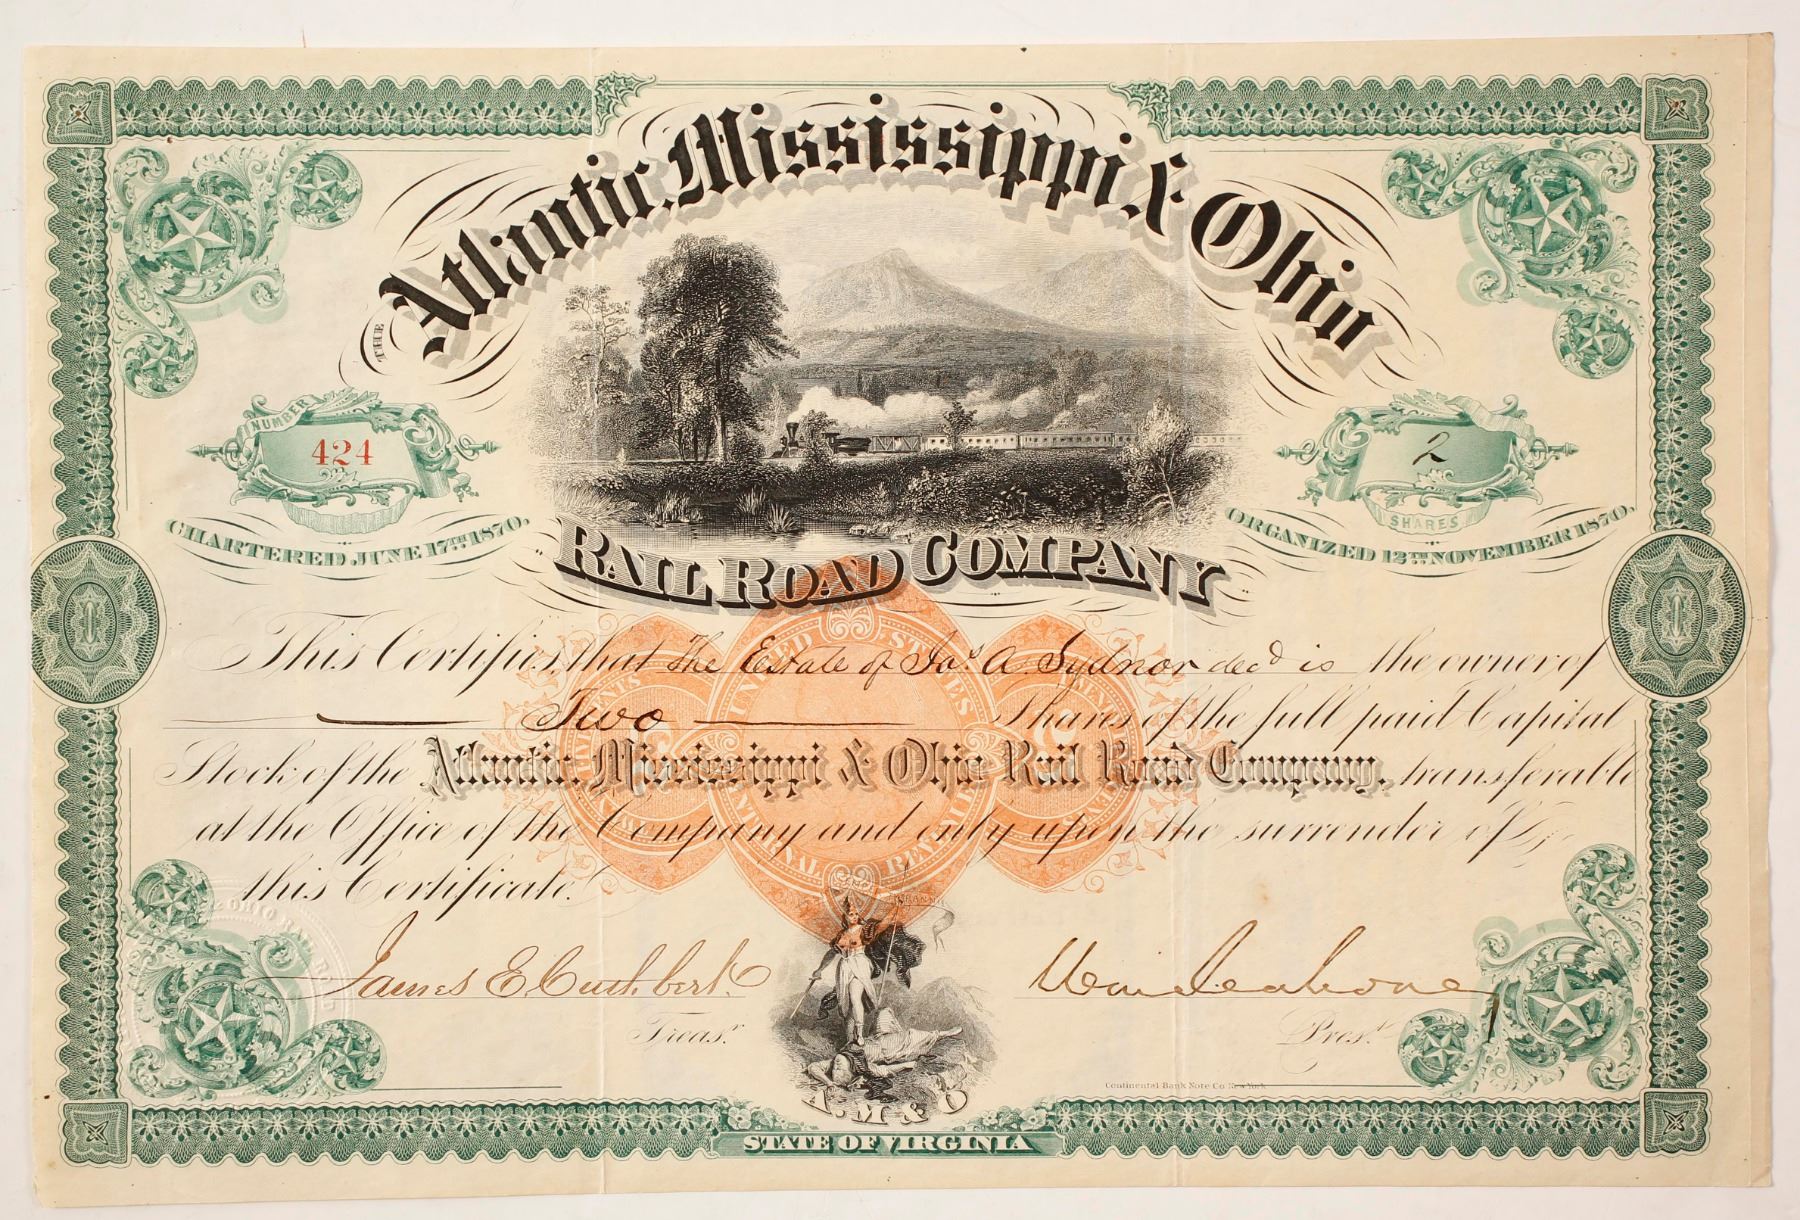 THE Atlantic, Mississippi & Ohio
NUMBER
424
2
SHARES
CHARTERED JUNE 17TH 1870.
ORGANIZED 12TH NOVEMBER 1870.
RAIL ROAD COMPANY
This Certifies that The Estate of Jas A. Sydnor decd is the owner of
Two Shares of the full paid Capital
Stock of the Atlantic, Mississippi & Ohio Rail Road Company, transferable
at the Office of the Company and only upon the surrender of
this Certificate.
UNITED STATES
INTERNAL REVENUE
James E. Cuthbert
Treasr.
Wm Mahone
Prest.
Continental Bank Note Co New York
A. M & O
STATE OF VIRGINIA